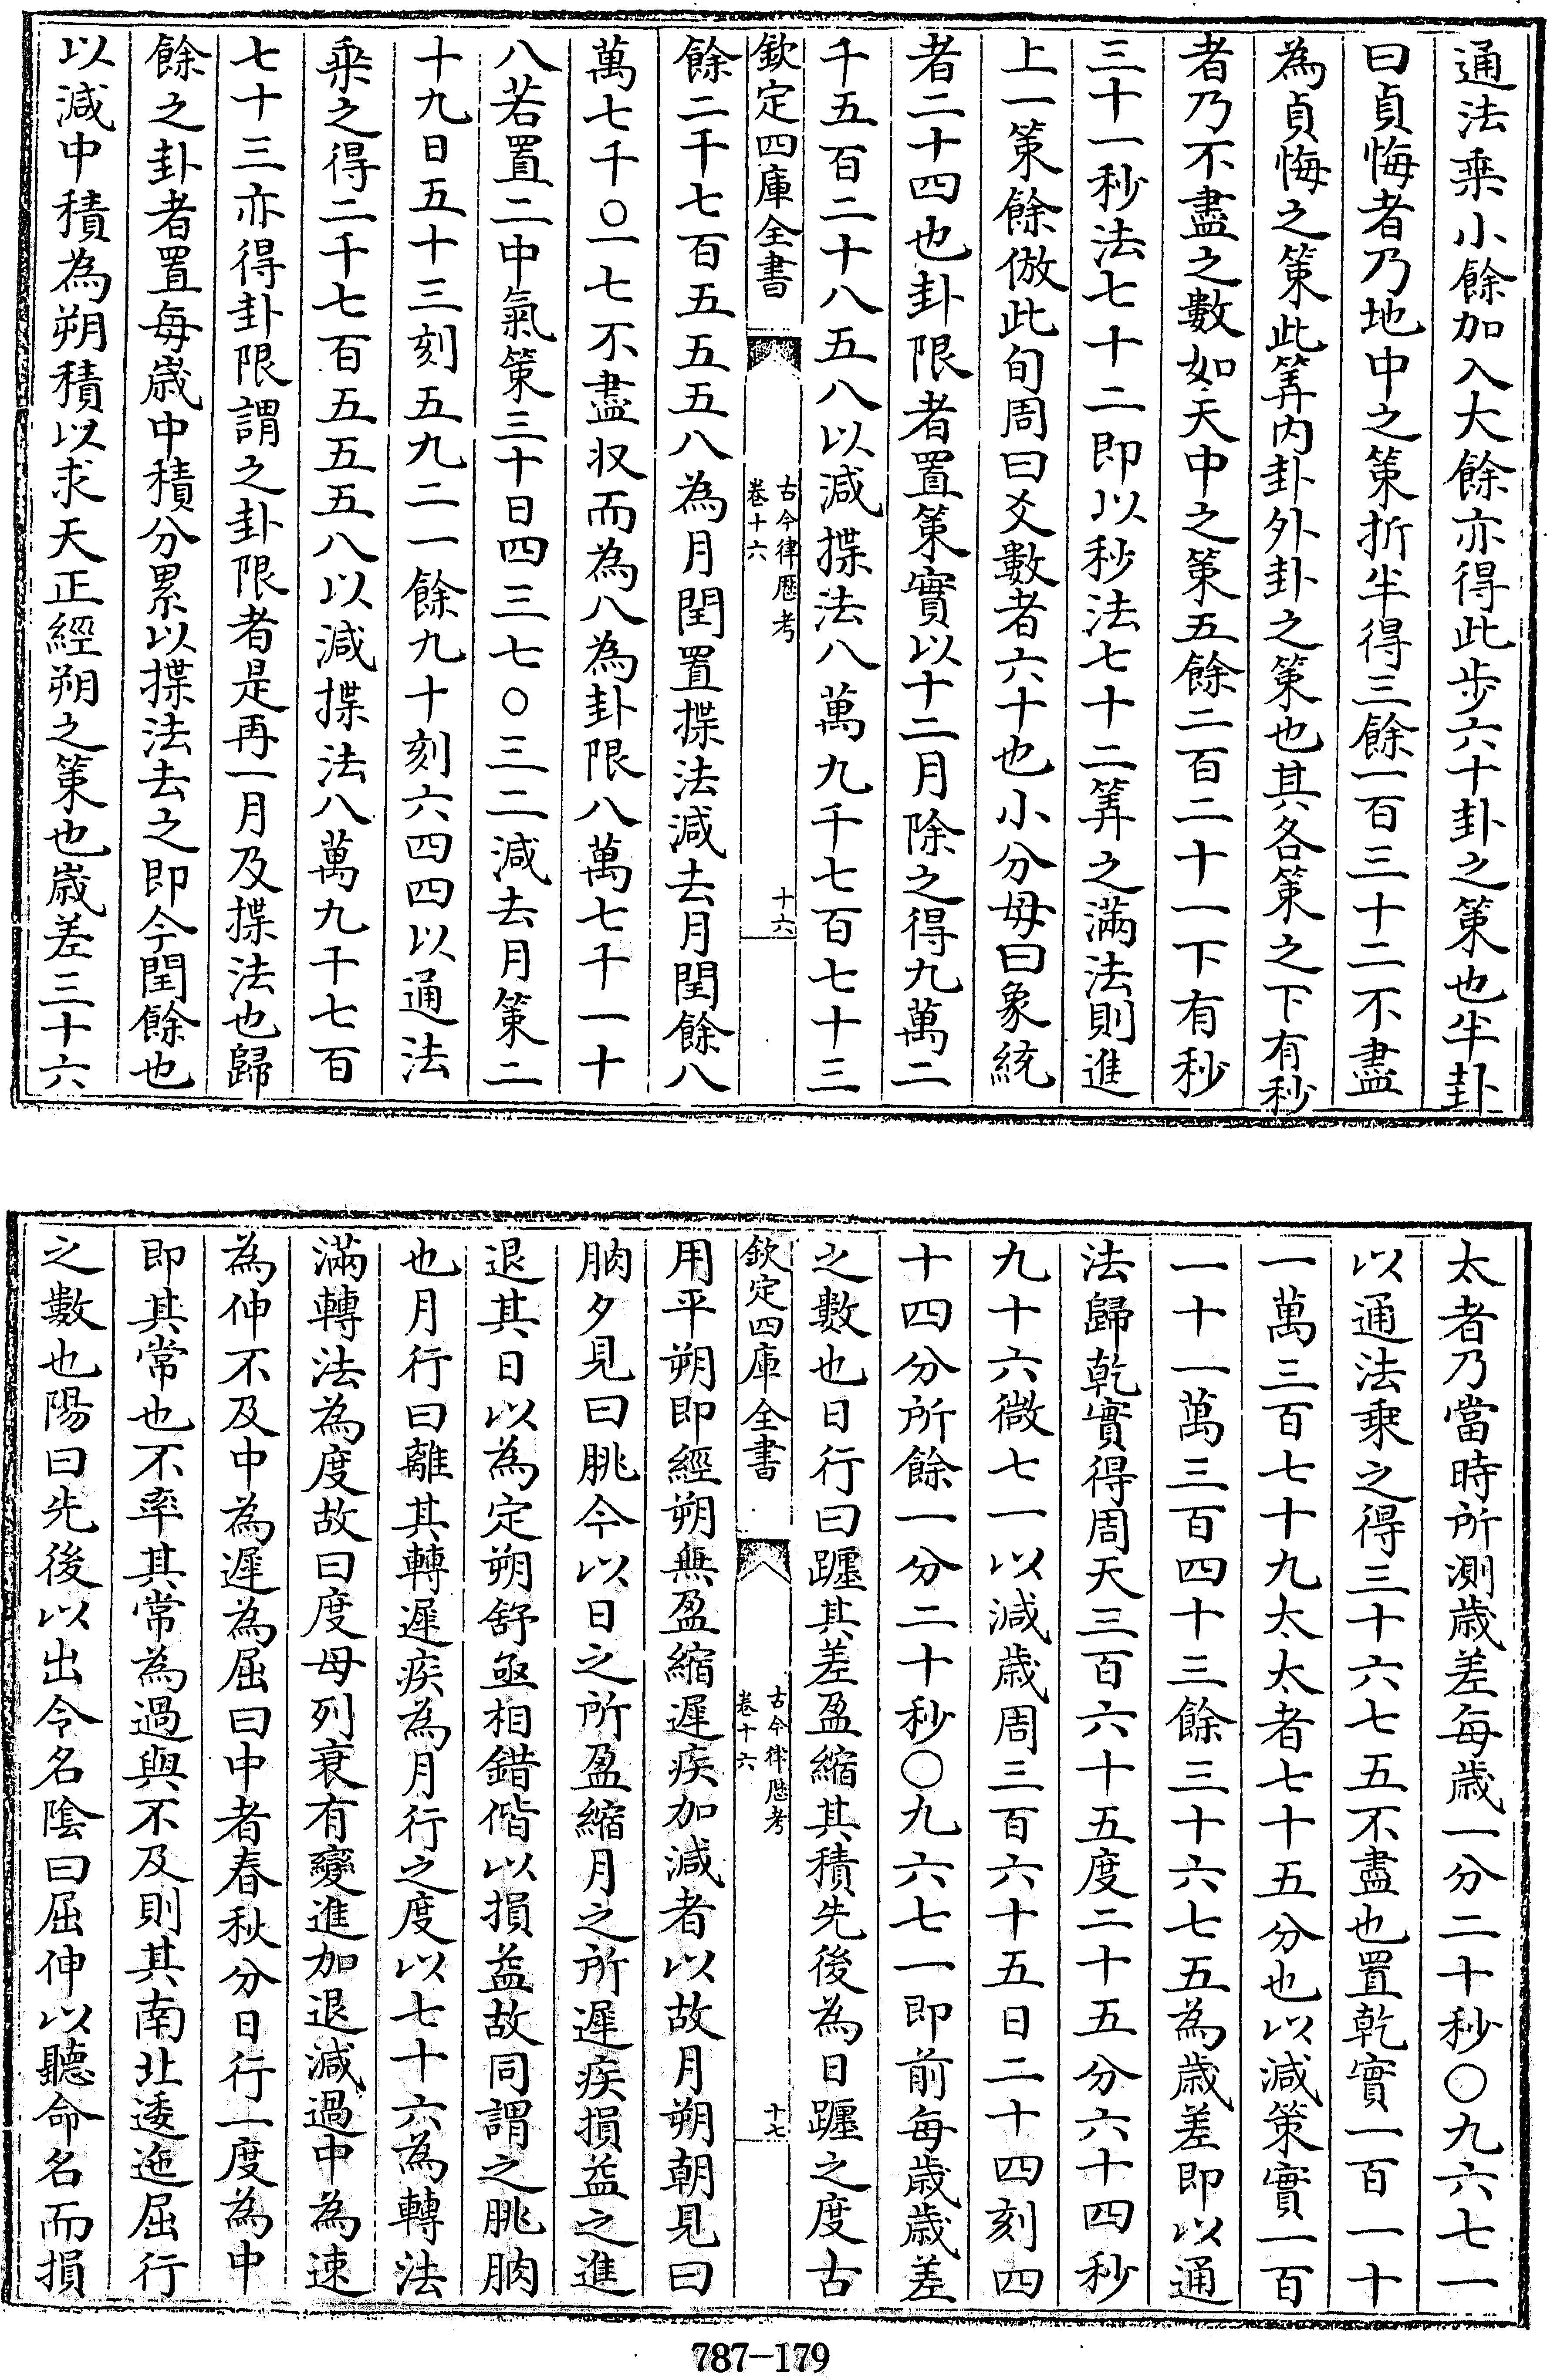 通法乗小餘加入大餘亦得此步六十卦之策也半卦
曰貞悔者乃地中之策折半得三餘一百三十二不盡
為貞悔之策此筭内卦外卦之策也其各策之下有秒
者乃不盡之數如天中之策五餘二百二十一下有秒
三十一秒法七十二即以秒法七十二筭之滿法則進
上一策餘倣此旬周曰爻數者六十也小分毋曰象統
者二十四也卦限者置策實以十二月除之得九萬二
千五百二十八五八以減揲法八萬九千七百七十三
欽定四庫全書
古今律歷考
卷十六
十六
餘二千七百五五五八為月閏置揲法減去月閏餘八
萬七千〇一七不盡収而為八為卦限八萬七千一十
八若置二中氣策三十日四三七〇三二減去月策二
十九日五十三刻五九二一餘九十刻六四四以通法
乗之得二千七百五五五八以減揲法八萬九千七百
七十三亦得卦限謂之卦限者是再一月及揲法也歸
餘之卦者置每歲中積分累以揲法去之即今閏餘也
以減中積為朔積以求天正經朔之策也歲差三十六
太者乃當時所測歲差每歲一分二十秒〇九六七一
以通法乗之得三十六七五不盡也置乾實一百一十
一萬三百七十九太太者七十五分也以減策實一百
一十一萬三百四十三餘三十六七五為歲差即以通
法歸乾實得周天三百六十五度二十五分六十四秒
九十六微七一以減歲周三百六十五日二十四刻四
十四分所餘一分二十秒〇九六七一即前每歲歲差
之數也日行曰躔其差盈縮其積先後為日躔之度古
欽定四庫全書
古今律歷考
卷十六
十七
用平朔即經朔無盈縮遲疾加減者以故月朔朝見曰
朒夕見曰朓今以日之所盈縮月之所遲疾損益之進
退其日以為定朔舒亟相錯偕以損益故同謂之朓朒
也月行曰離其轉遲疾為月行之度以七十六為轉法
滿轉法為度故曰度母列衰有變進加退減過中為速
為伸不及中為遲為屈曰中者春秋分日行一度為中
即其常也不率其常為過與不及則其南北逶迤屈行
之數也陽曰先後以出令名陰曰屈伸以聽命名而損
787—179